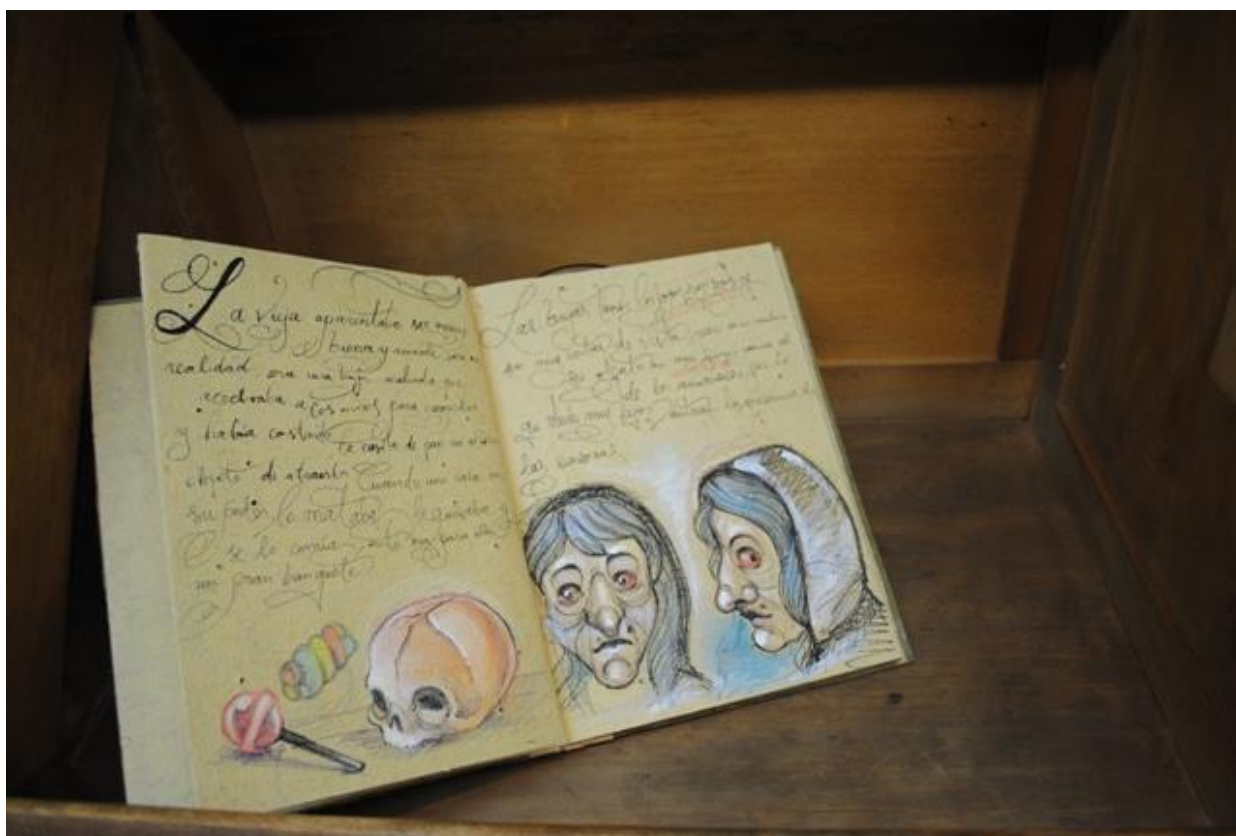 La vieja aparentaba ser muy
buena y amable, pero en
realidad, era una bruja malvada que
acechaba a los niños para comerlos
y había construido la casita de pan con el único
objeto de atraerla. Cuando uno caía en
su poder, lo mataba, lo guisaba y
se lo comía, esto era para ella
un gran banquete.
Las brujas tienen los ojos rojos y
son muy cortas de vista, pero en cambio
su olfato es muy fino como el
de los animales, por lo
que desde muy lejos notan la presencia de
las personas.